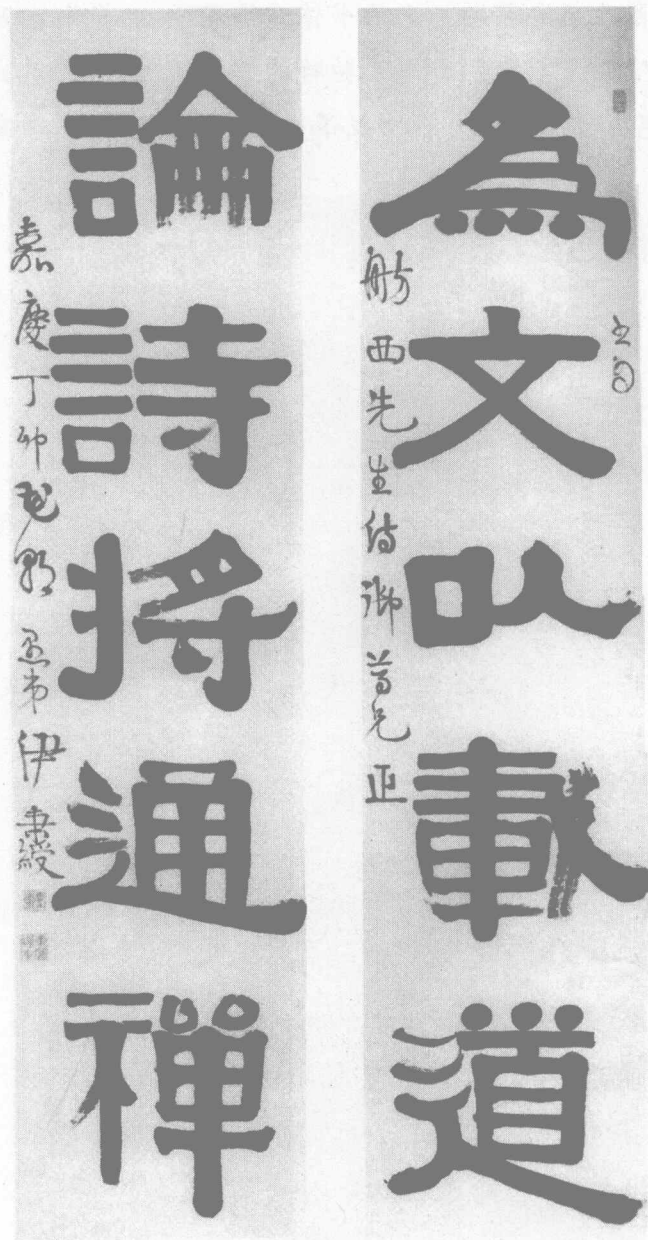 為文以載道
舫西先生侍御尊兄正
論詩將通禪
嘉慶丁卯 愚弟伊秉綬